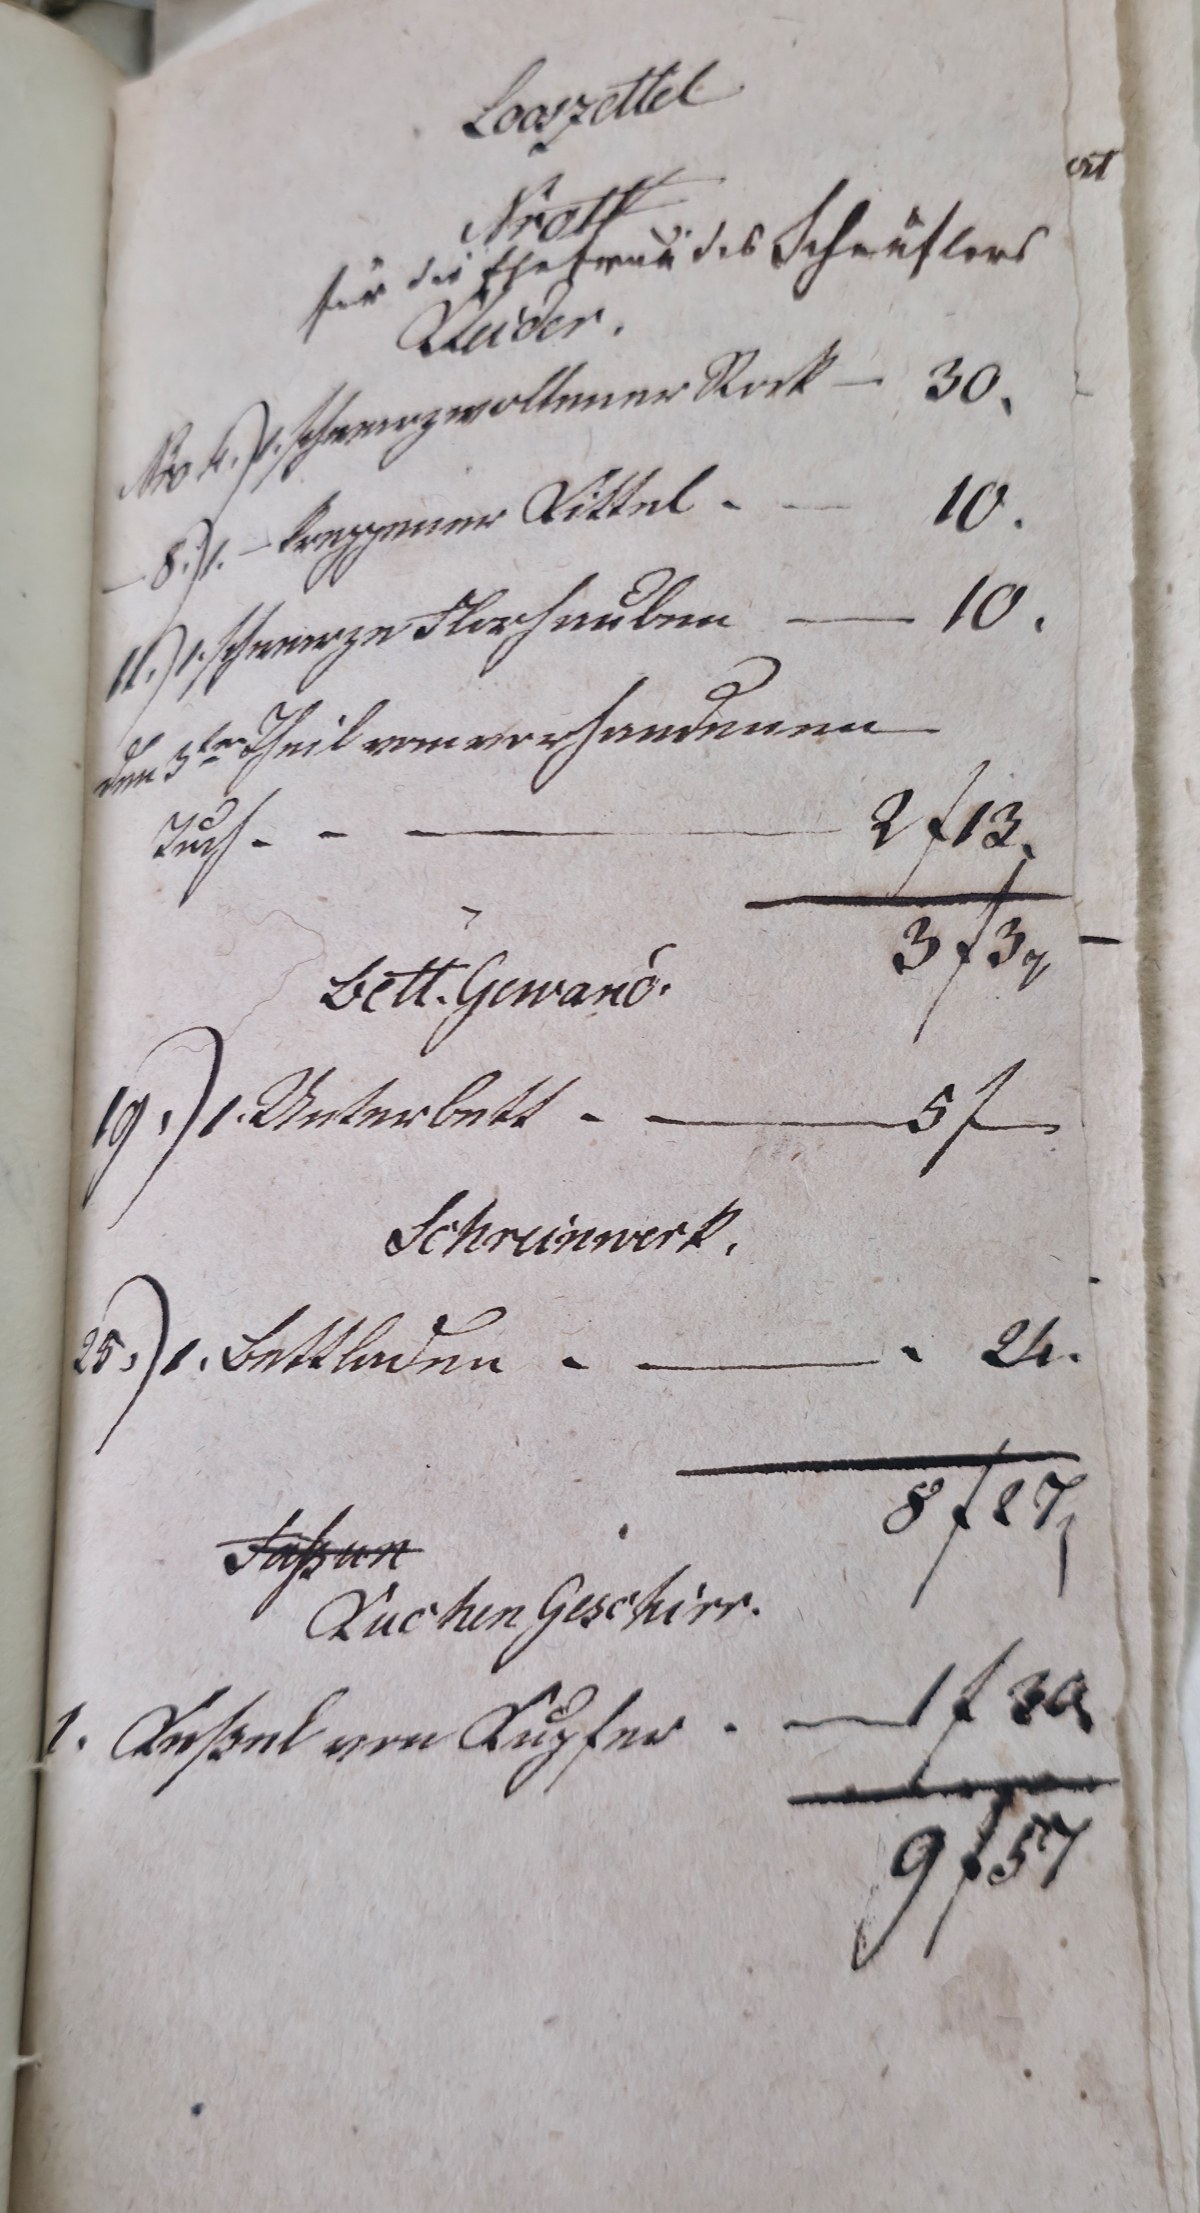 Looszettel
für die Ehefrau des Schäuflers
Kleider.
Nro 4.) 1. schwarzwollener Rock — 30.
— 8.) 1. — kreppener Kittel - — 10.
11.) 1. schwarze Florhauben — 10.
den 3ten Theil vom vorhandenen
Tuch - - — 2 f 13.
3 f 3
Bett. Gewand.
19.) 1. Unterbett - — 5 f —
Schreinwerk.
25.) 1. Bettladen - — - 24.
8 f 27
Kuchen Geschirr.
1. Keßel von Kupfer - — 1 f 30
9 f 57